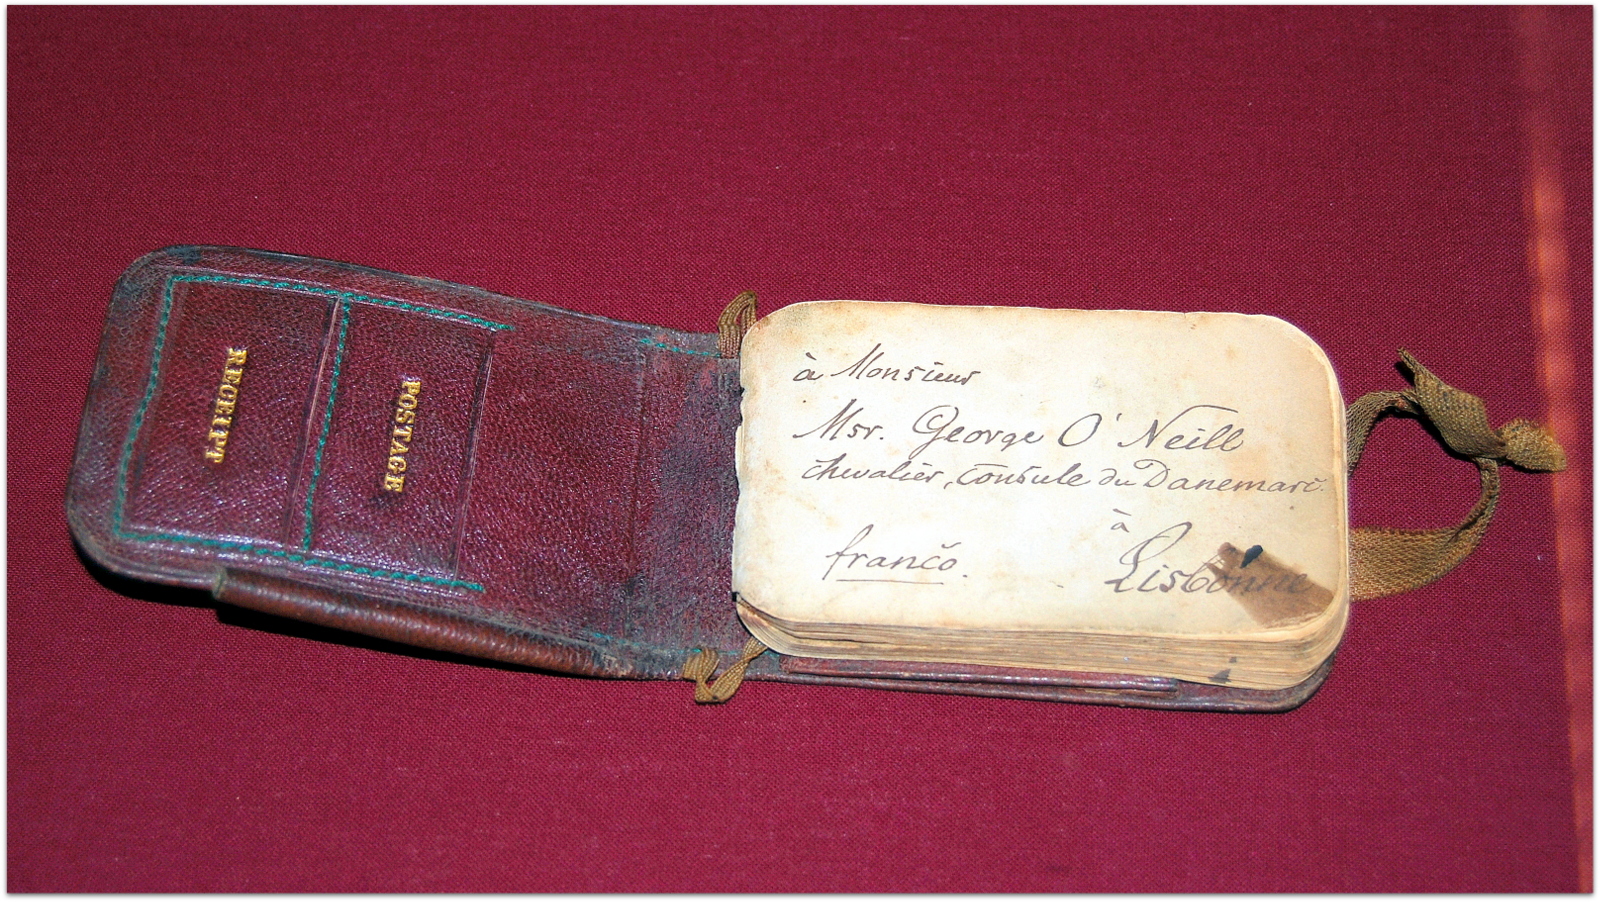 RECEIPT
POSTAGE
à Monsieur
Msr. George O'Neill
chevalier, Consule du Danemarc.
à
franco. Lisbonne